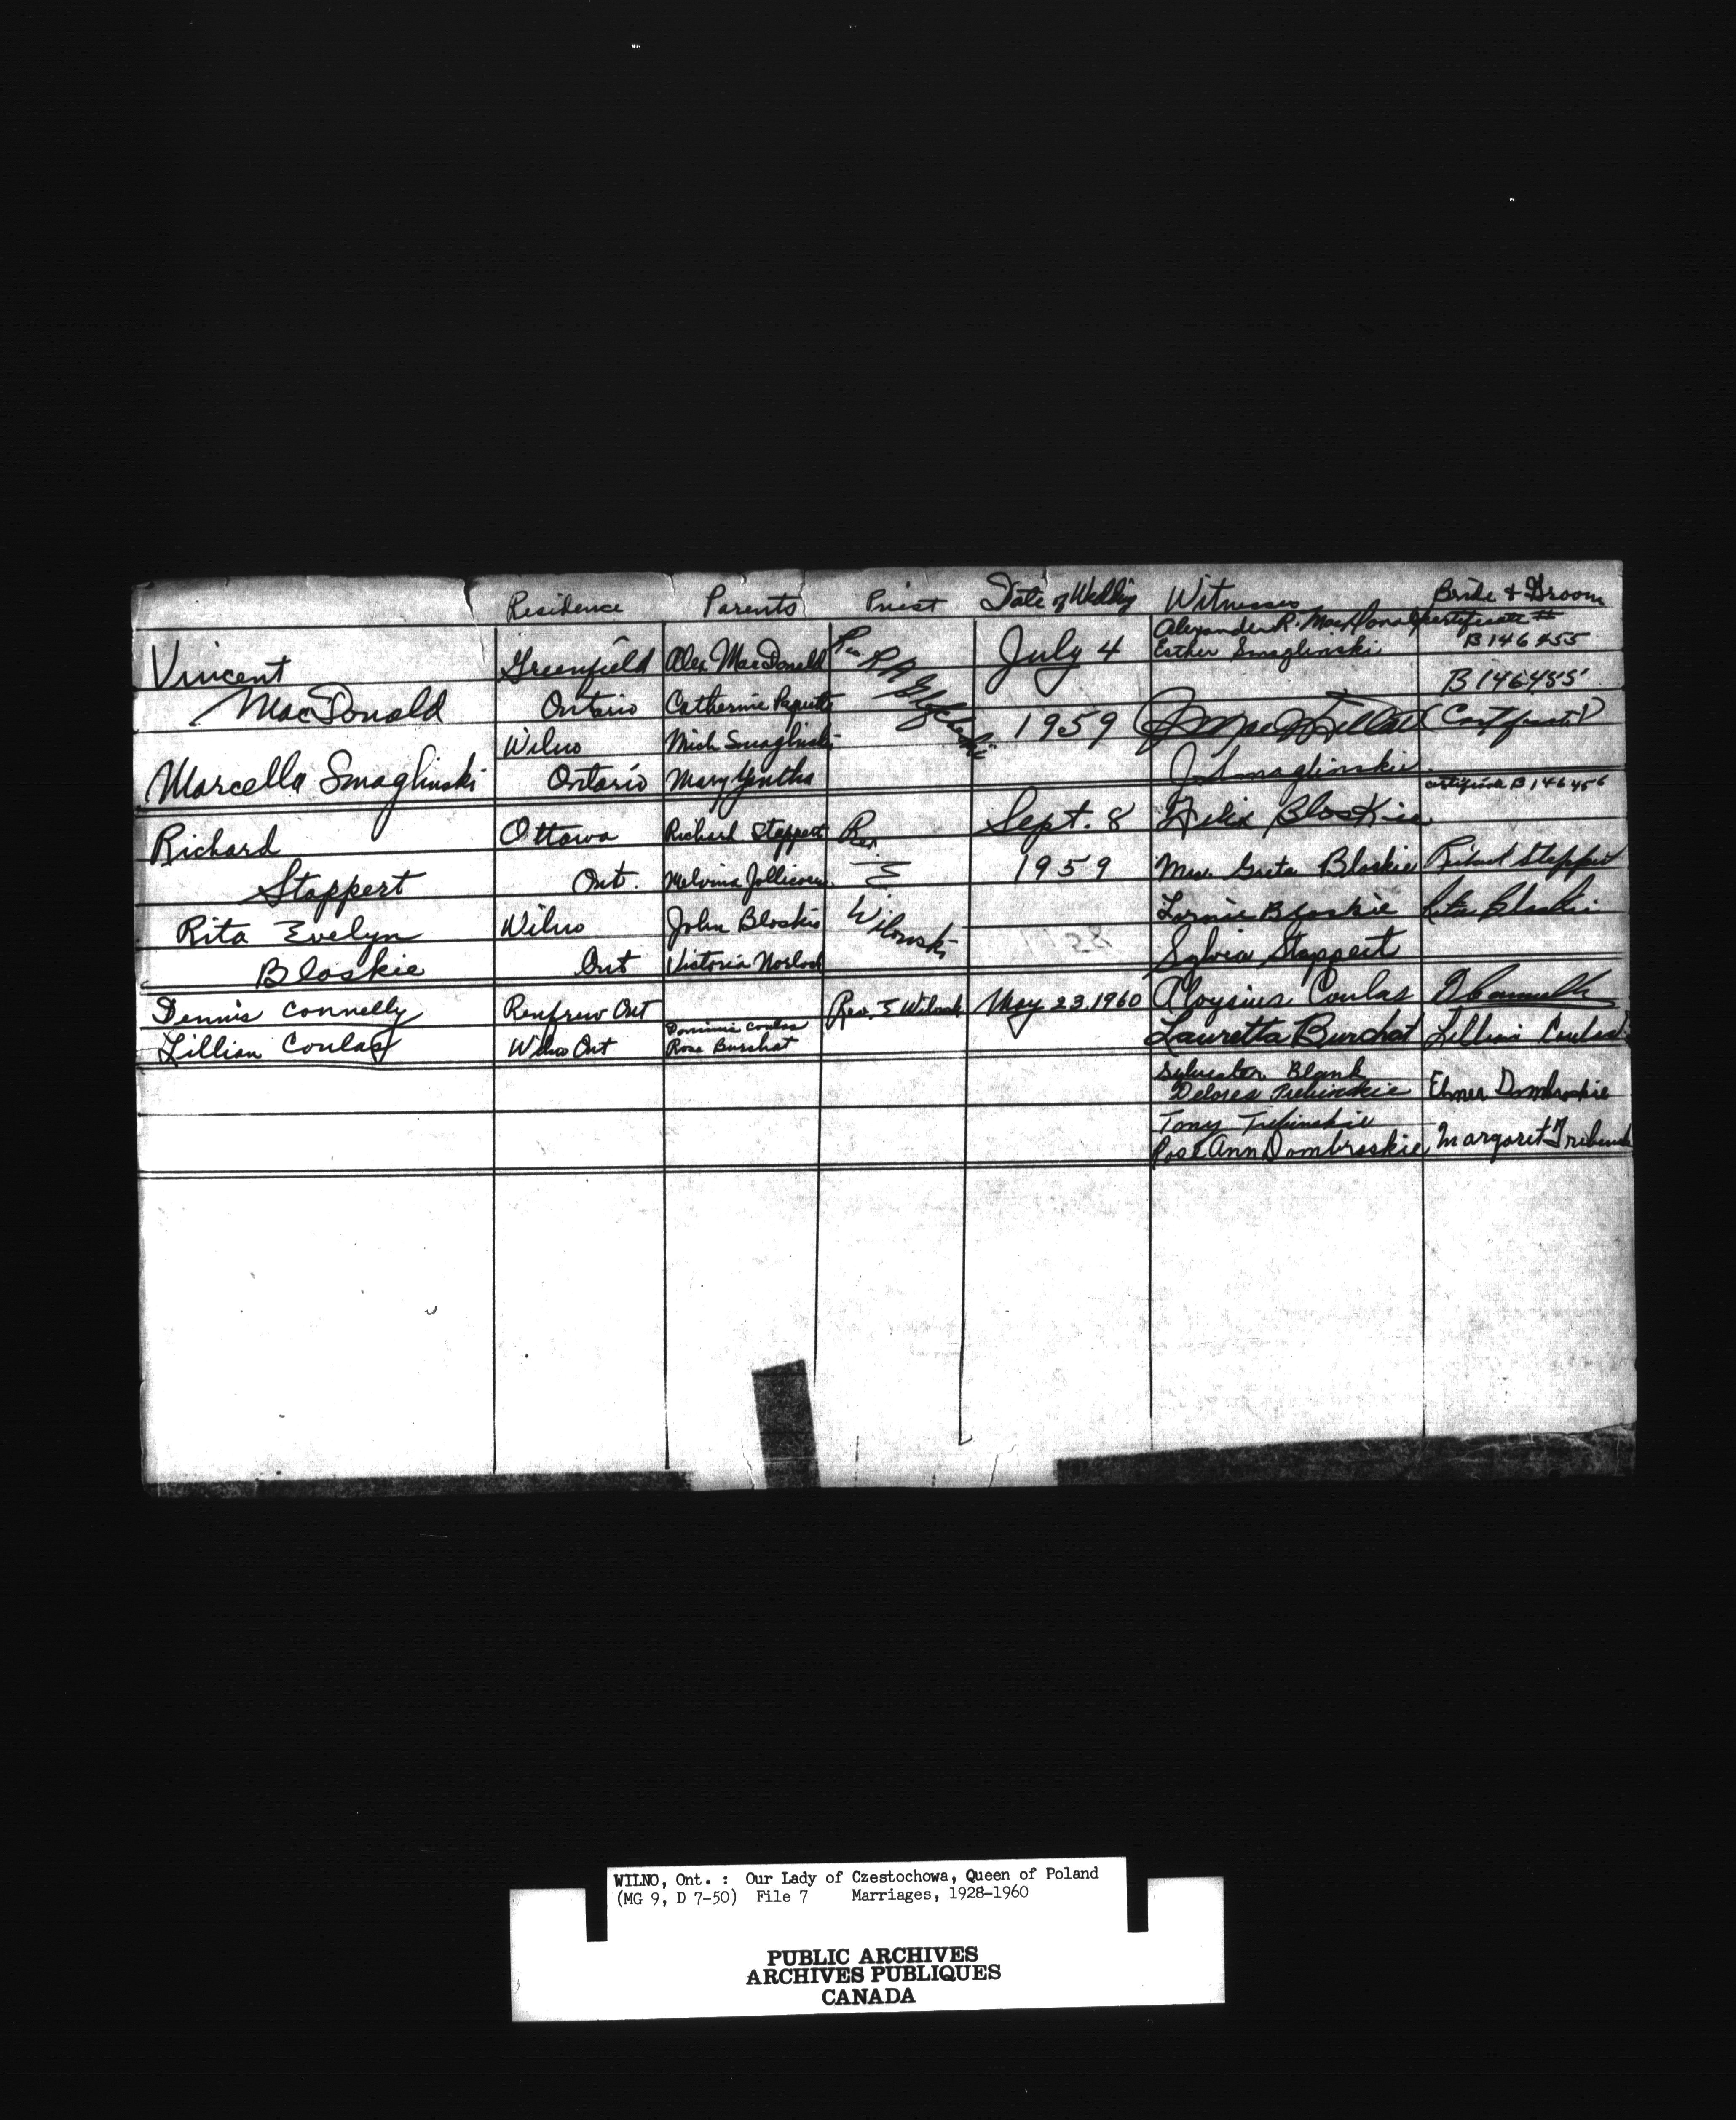 Residence Parents Priest Date of Wedding Witnesses Bride & Groom
Alexander R. MacDonald certificate #
Vincent Greenfield Alex MacDonald Rev July 4 Esther Smaglinski B146455
MacDonald Ontario Catherine 1959 B146455
Wilno Mich Smaglinski
Marcella Smaglinski Ontario Mary Yantha J Smaglinskie
certificate B146456
Richard Ottawa Richard Stoppert Rev. Sept. 8 Felix Bloskie
Stoppert Ont. Melvina E 1959 Mrs. Greta Bloskie Richard Stoppert
Rita Evelyn Wilno John Bloskie Wilowski Lornie Bloskie Rita Bloskie
Bloskie Ont Victoria Norlock Sylvia Stoppert
Dennis Connelly Renfrew Ont Rev. E May 23, 1960 Aloysius Coulas
Dominic Coulas
Lillian Coulas Wilno Ont Rose Burchat Lauretta Burchat Lillian Coulas
Sylvester Blank
Delores Elmer Dombroskie
Tony
Rose Ann Dombroskie Margaret
WILNO, Ont. : Our Lady of Czestochowa, Queen of Poland
(MG 9, D 7-50) File 7 Marriages, 1928-1960
PUBLIC ARCHIVES
ARCHIVES PUBLIQUES
CANADA